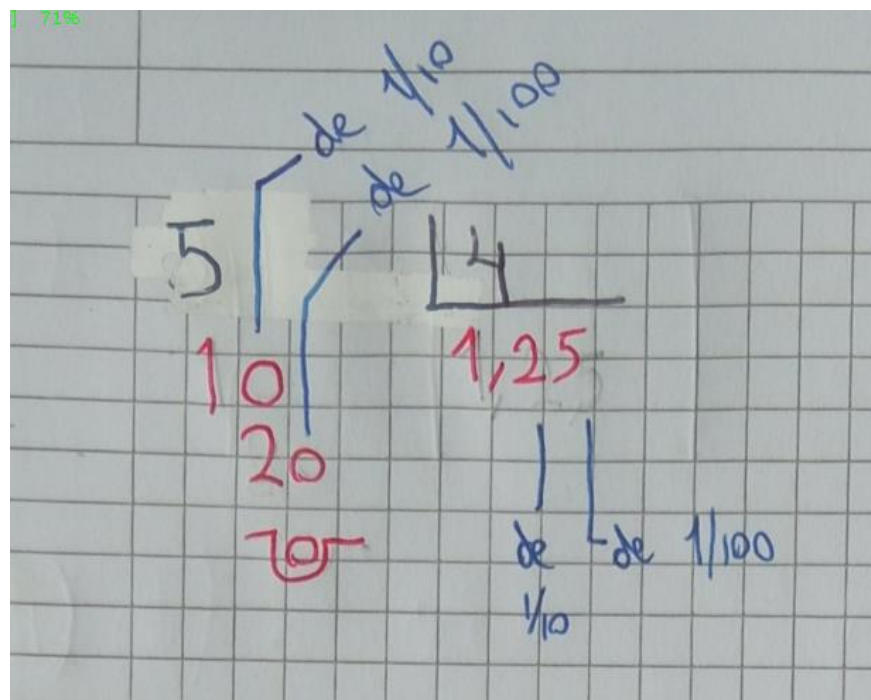 ] 71%
de 1/10
de 1/100
5 4
10 1,25
20
0
de de 1/100
1/10